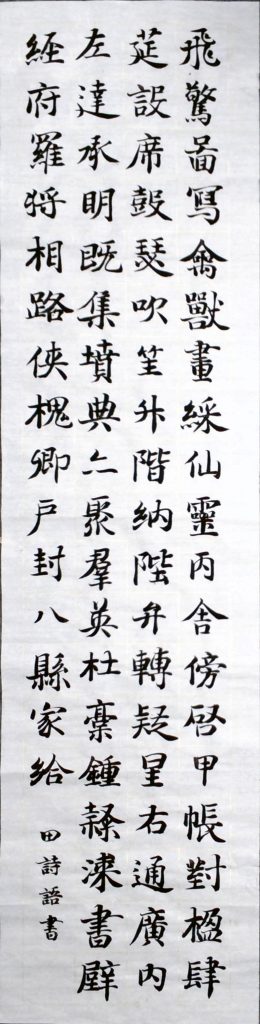 飛驚啚寫禽獸畫綵仙靈丙舍傍啓甲帳對楹肆
莚設席鼓瑟吹笙升階納陛弁轉疑星右通廣内
左達承明既集墳典亦聚羣英杜稾鍾隸漆書壁
經府羅將相路俠槐卿戶封八縣家給
田詩語書